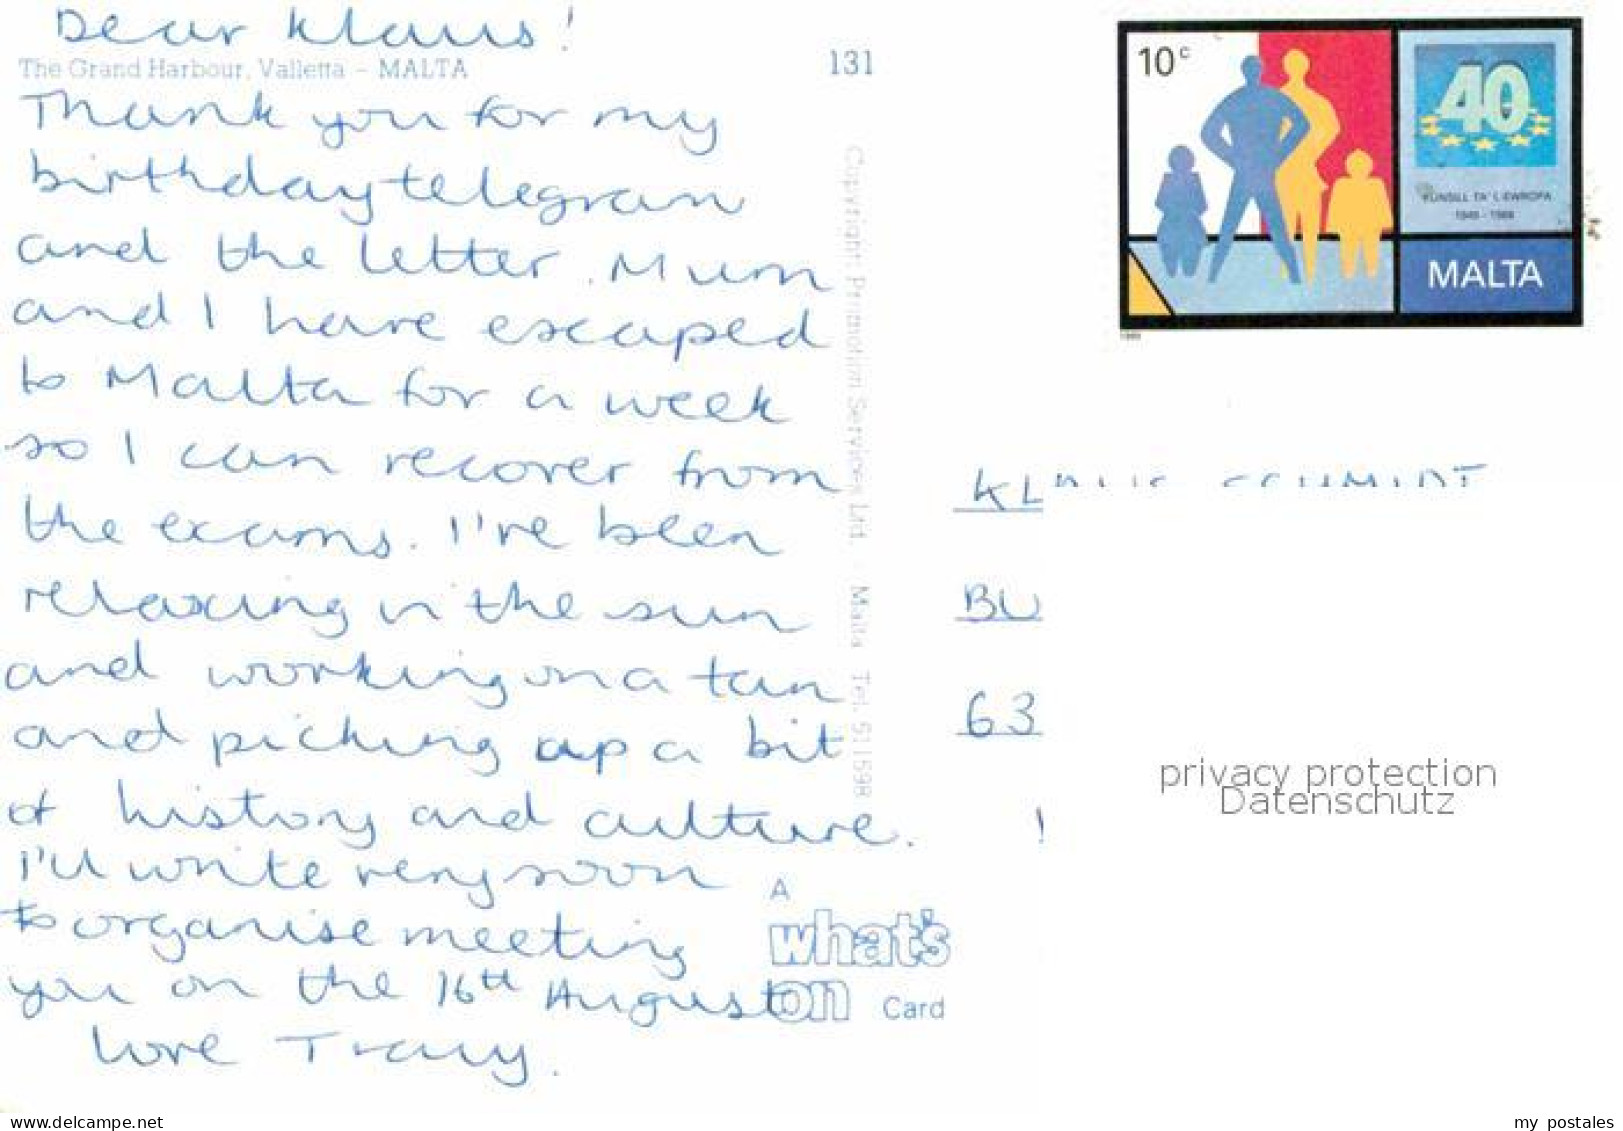 Dear Klaus!
The Grand Harbour, Valletta – MALTA
131
Thank you for my
birthday telegram
and the letter. Mum
and I have escaped
to Malta for a week
so I can recover from
the exams. I've been
relaxing in the sun
and working on a tan
and picking up a bit
of history and culture.
I'll write very soon
to organise meeting
you on the 16th August
Love Tracy.
Copyright Promotion Services Ltd. - Malta Tel. 511598
A
what's
on Card
10c
40
KUNSILL TA' L-EWROPA
1949 - 1989
MALTA
1989
KLAUS SCHMIDT
BU
63
privacy protection
Datenschutz
delcampe.net
my_postales